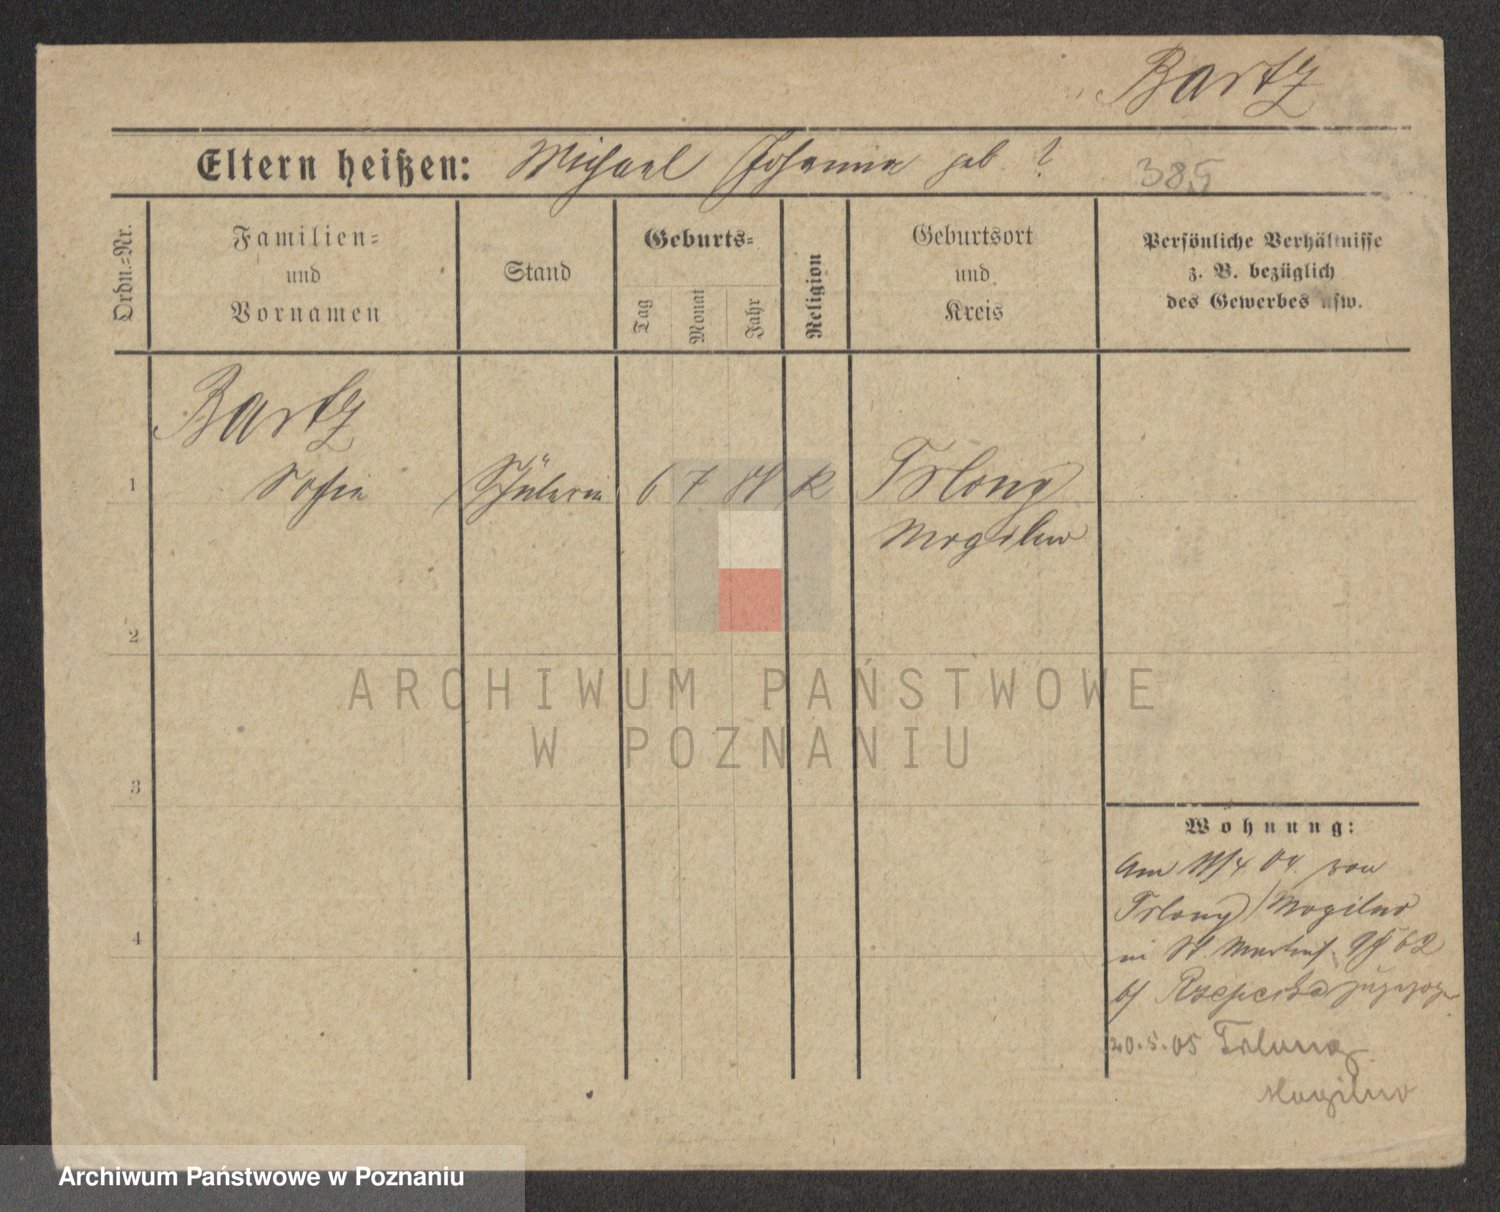 Bartz
Eltern heißen: Michael Johanna geb. ?
385
Ordn.=Nr.
Familien=
und
Vornamen
Stand
Geburts=
Tag
Monat
Jahr
Religion
Geburtsort
und
Kreis
Persönliche Verhältnisse
z. B. bezüglich
des Gewerbes usw.
Bartz
1 Sofia Schülerin 6 7 K Trlong
Mogilno
2
ARCHIWUM PAŃSTWOWE
W POZNANIU
3
Wohnung:
Am 11/4 04. von
Trlong/Mogilno
in St. Martinst. 62
b/ Rzepecka zugezogen
4
20.5.05 Trlong
Mogilno
Archiwum Państwowe w Poznaniu